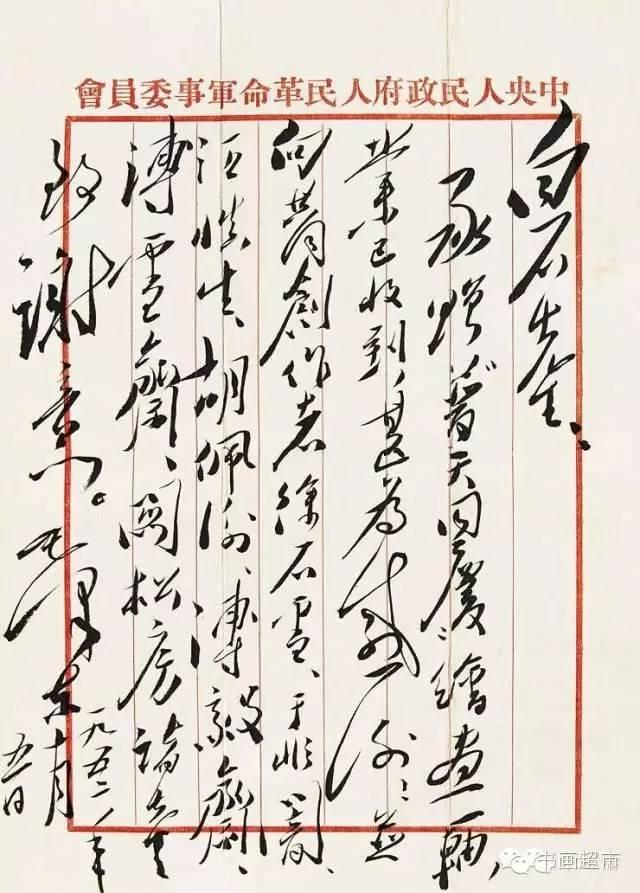 中央人民政府人民革命軍事委員會
白石先生：
承贈普天同慶繪畫一軸，
業已收到，甚為感謝！並
向共同創作者徐石雪、于非闇、
汪慎生、胡佩衡、溥毅齋、
溥雪齋、關松房諸先生
致謝意。毛澤東
一九五二年
十月
五日
书画超市